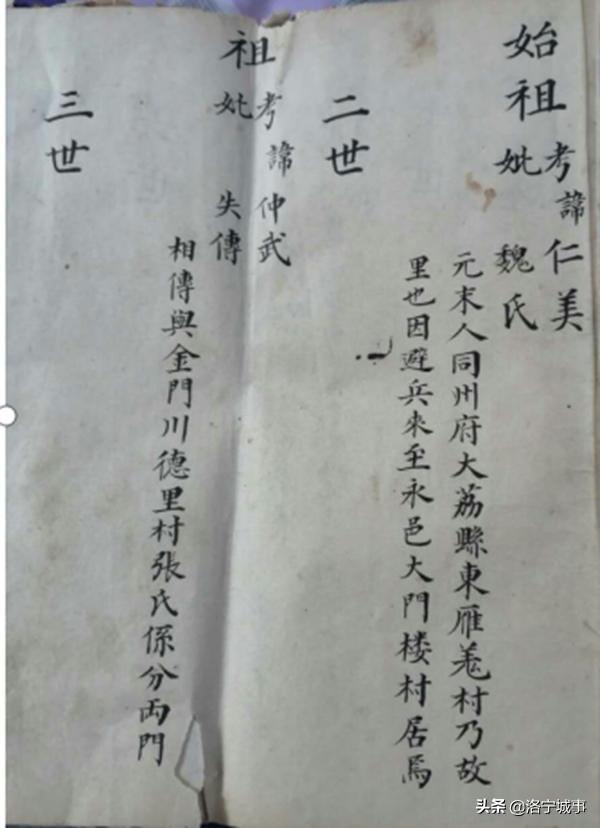 始祖
考諱仁美
妣魏氏
元末人同州府大荔縣東雁羗村乃故
里也因避兵來至永邑大門楼村居焉
二世
祖
考諱仲武
妣失傳
相傳與金門川德里村張氏係分両門
三世
头条 @洛宁城事